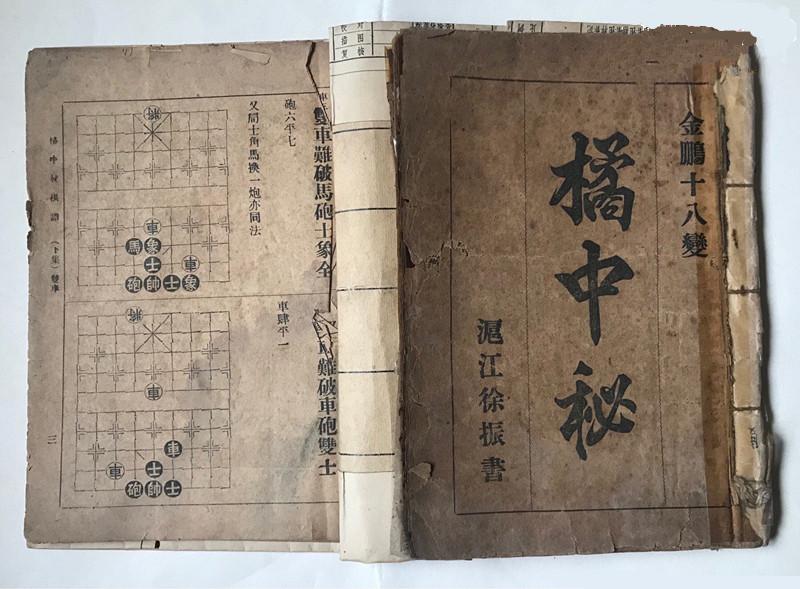 金鵬十八變
橘中秘
滬江徐振書
雙車難破馬砲士象全
砲六平七
又局士角馬換一炮亦同法
將
車
馬象
士車
砲帥士象
難破車砲雙士
車肆平一
將
車
車
車士
砲帥士
橘中秘棋譜 (下集) 雙車
三